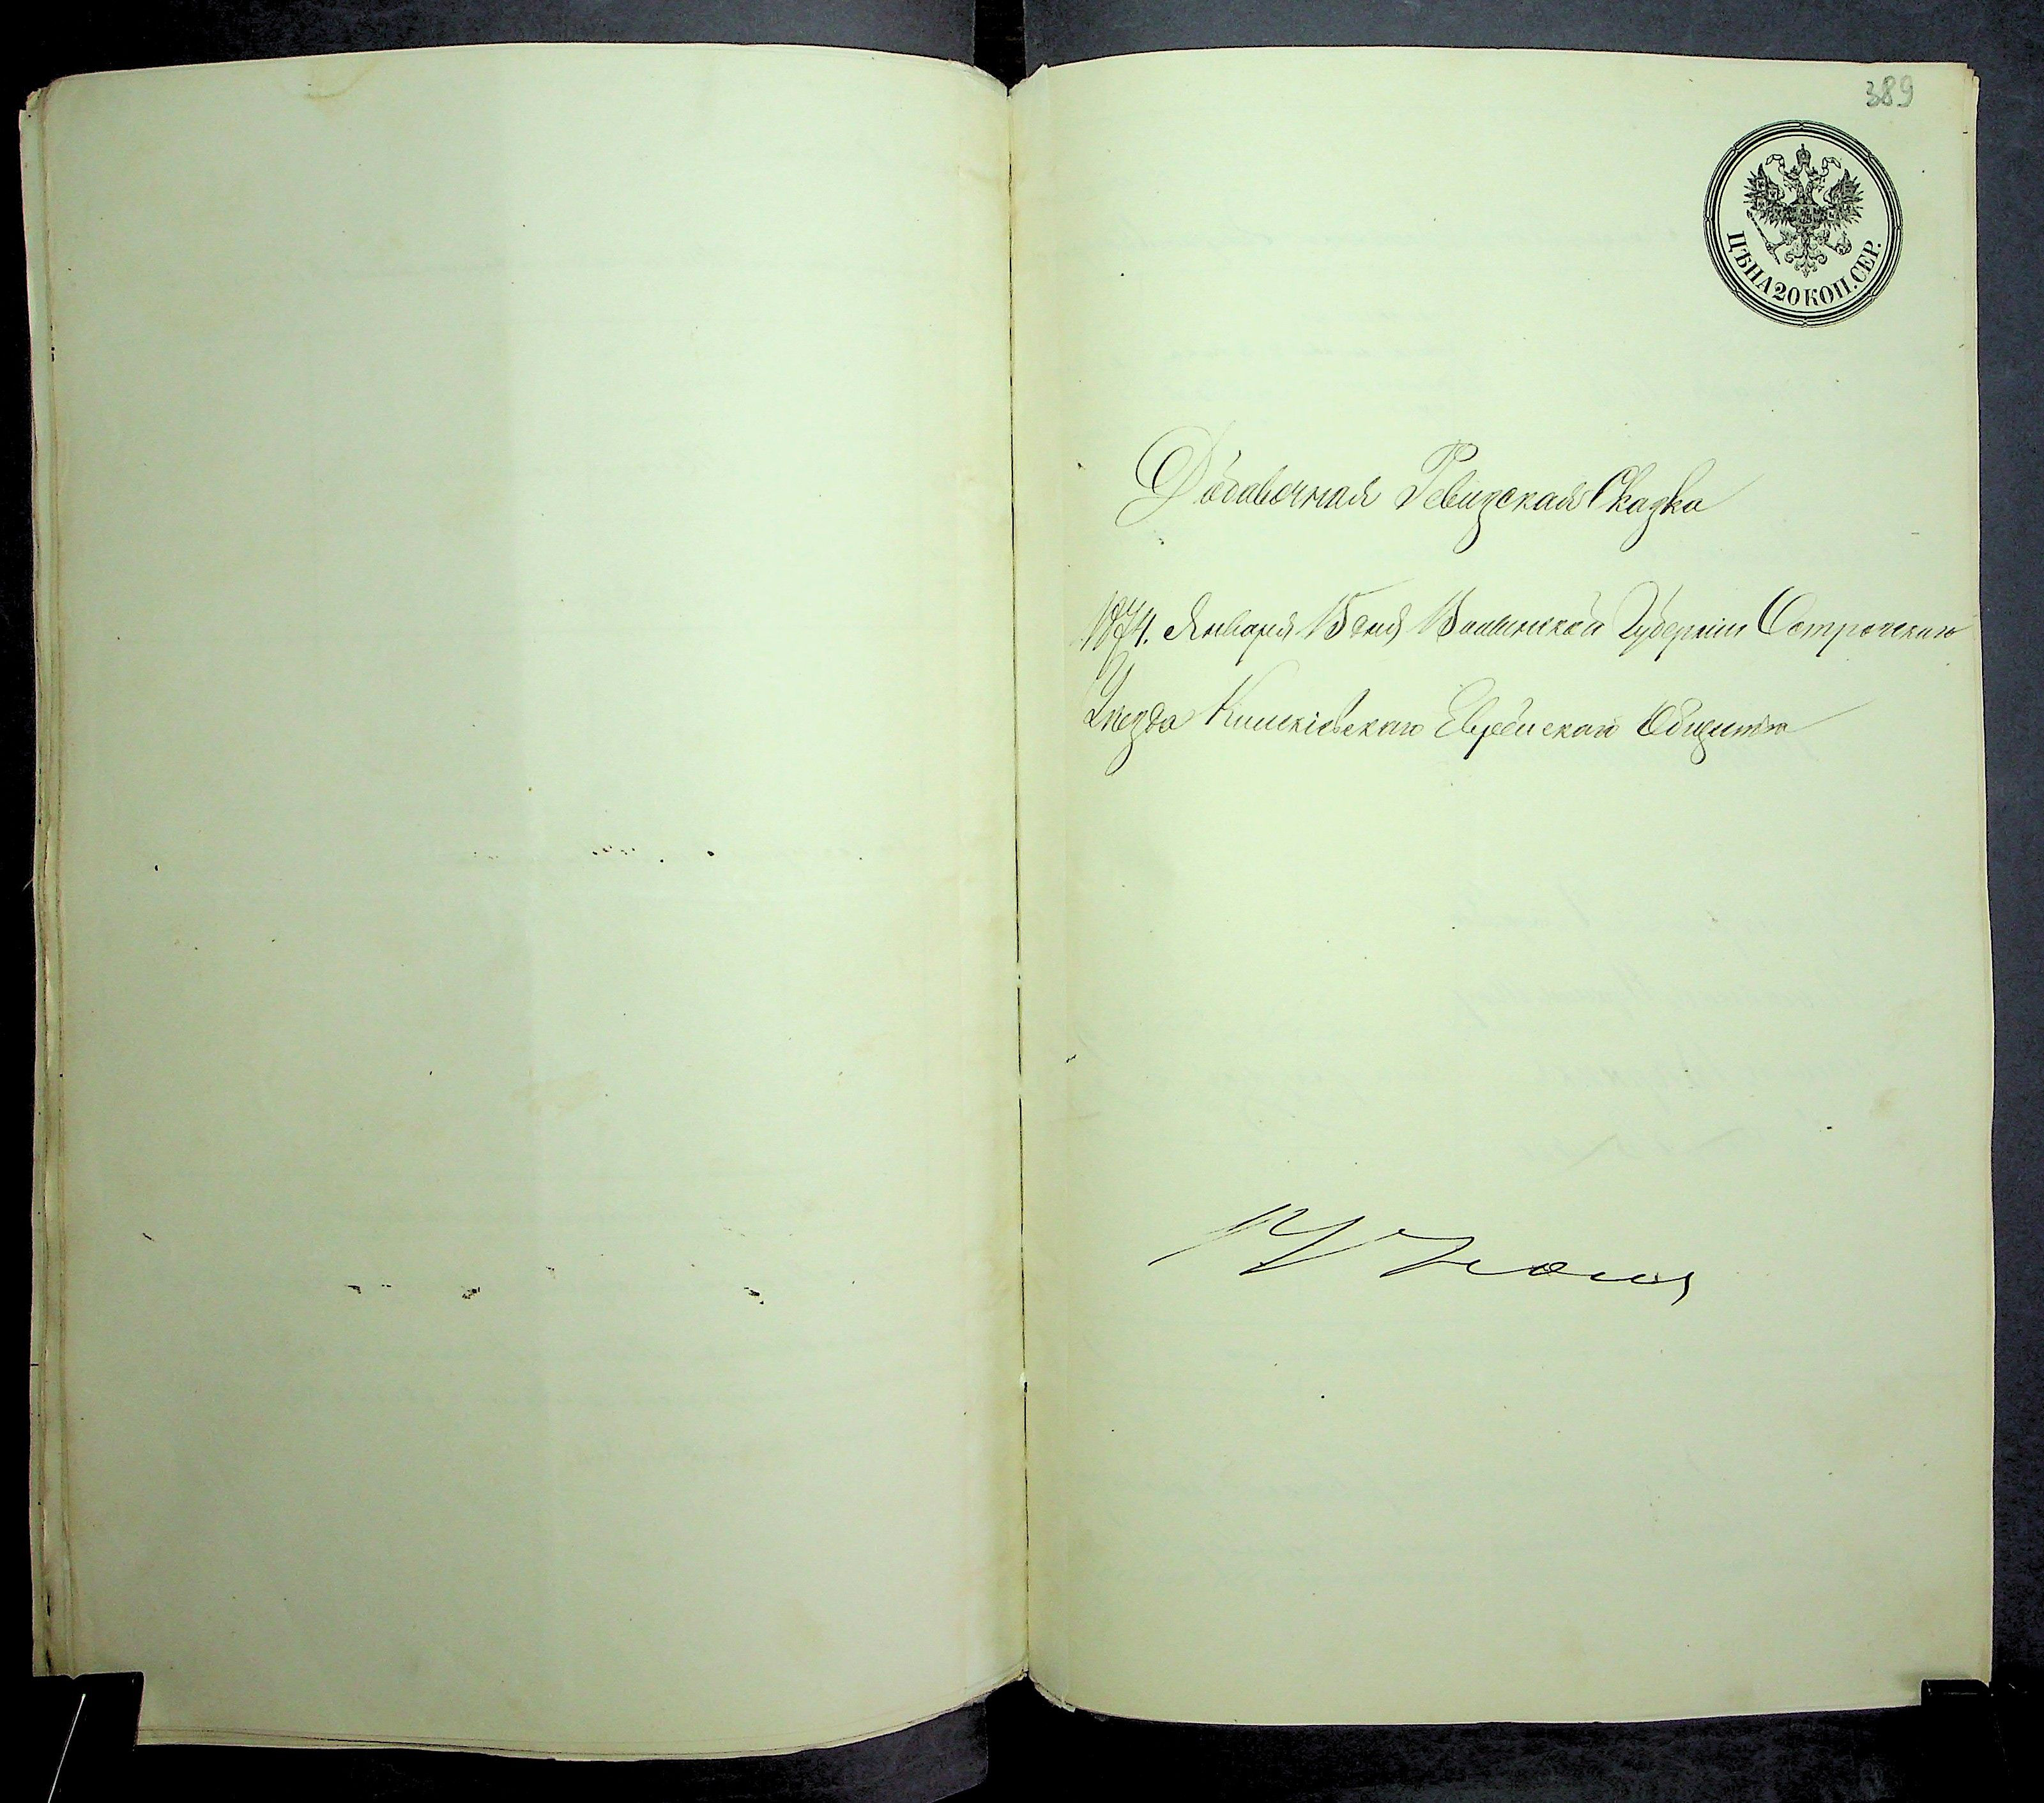 389
ЦѢНА 20 КОП. СЕР.
Добавочная Ревизская Сказка
1874. Января 15 дня Волынской Губернии Острожскаго
Уезда Киликіевскаго Еврейскаго Общества